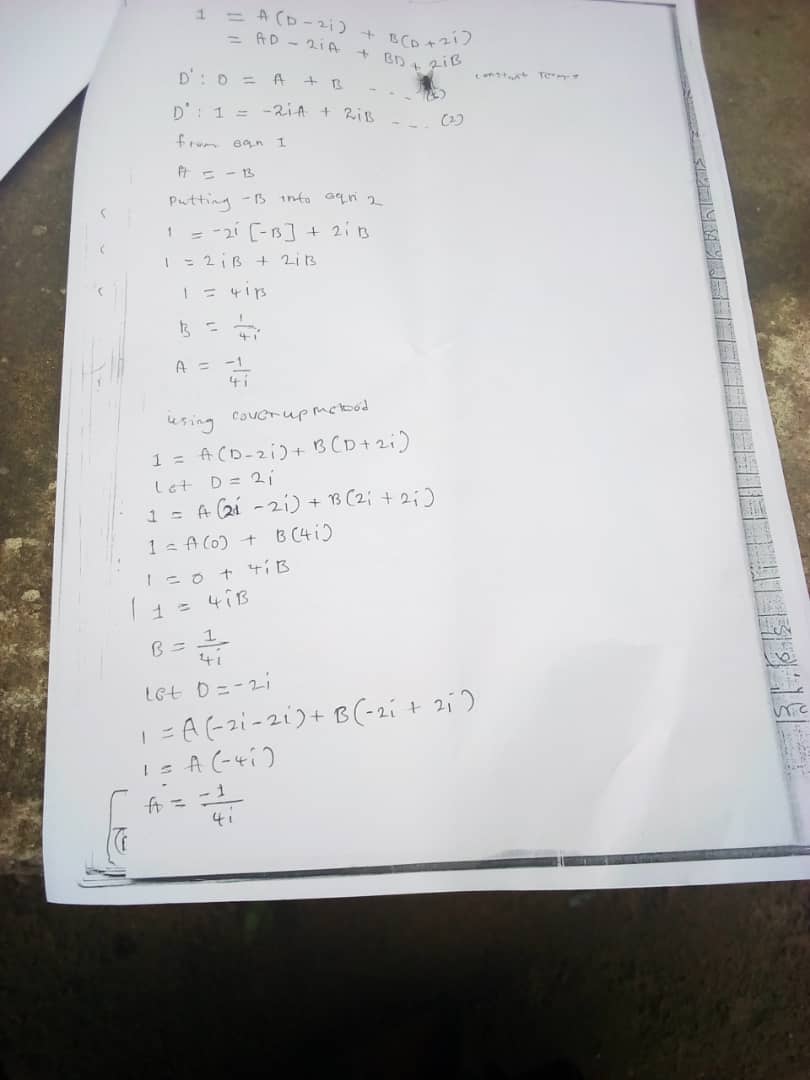 1 = A(D-2i) + B(D+2i)
= AD - 2iA + BD + 2iB
D': 0 = A + B - - - (1) constant terms
D°: 1 = -2iA + 2iB - - - (2)
from eqn 1
A = -B
Putting -B into eqn 2
1 = -2i [-B] + 2iB
1 = 2iB + 2iB
1 = 4iB
B = 1/4i
A = -1/4i
using cover up method
1 = A(D-2i) + B(D+2i)
Let D = 2i
1 = A(2i - 2i) + B(2i + 2i)
1 = A(0) + B(4i)
1 = 0 + 4iB
1 = 4iB
B = 1/4i
Let D = -2i
1 = A(-2i-2i) + B(-2i + 2i)
1 = A(-4i)
A = -1/4i